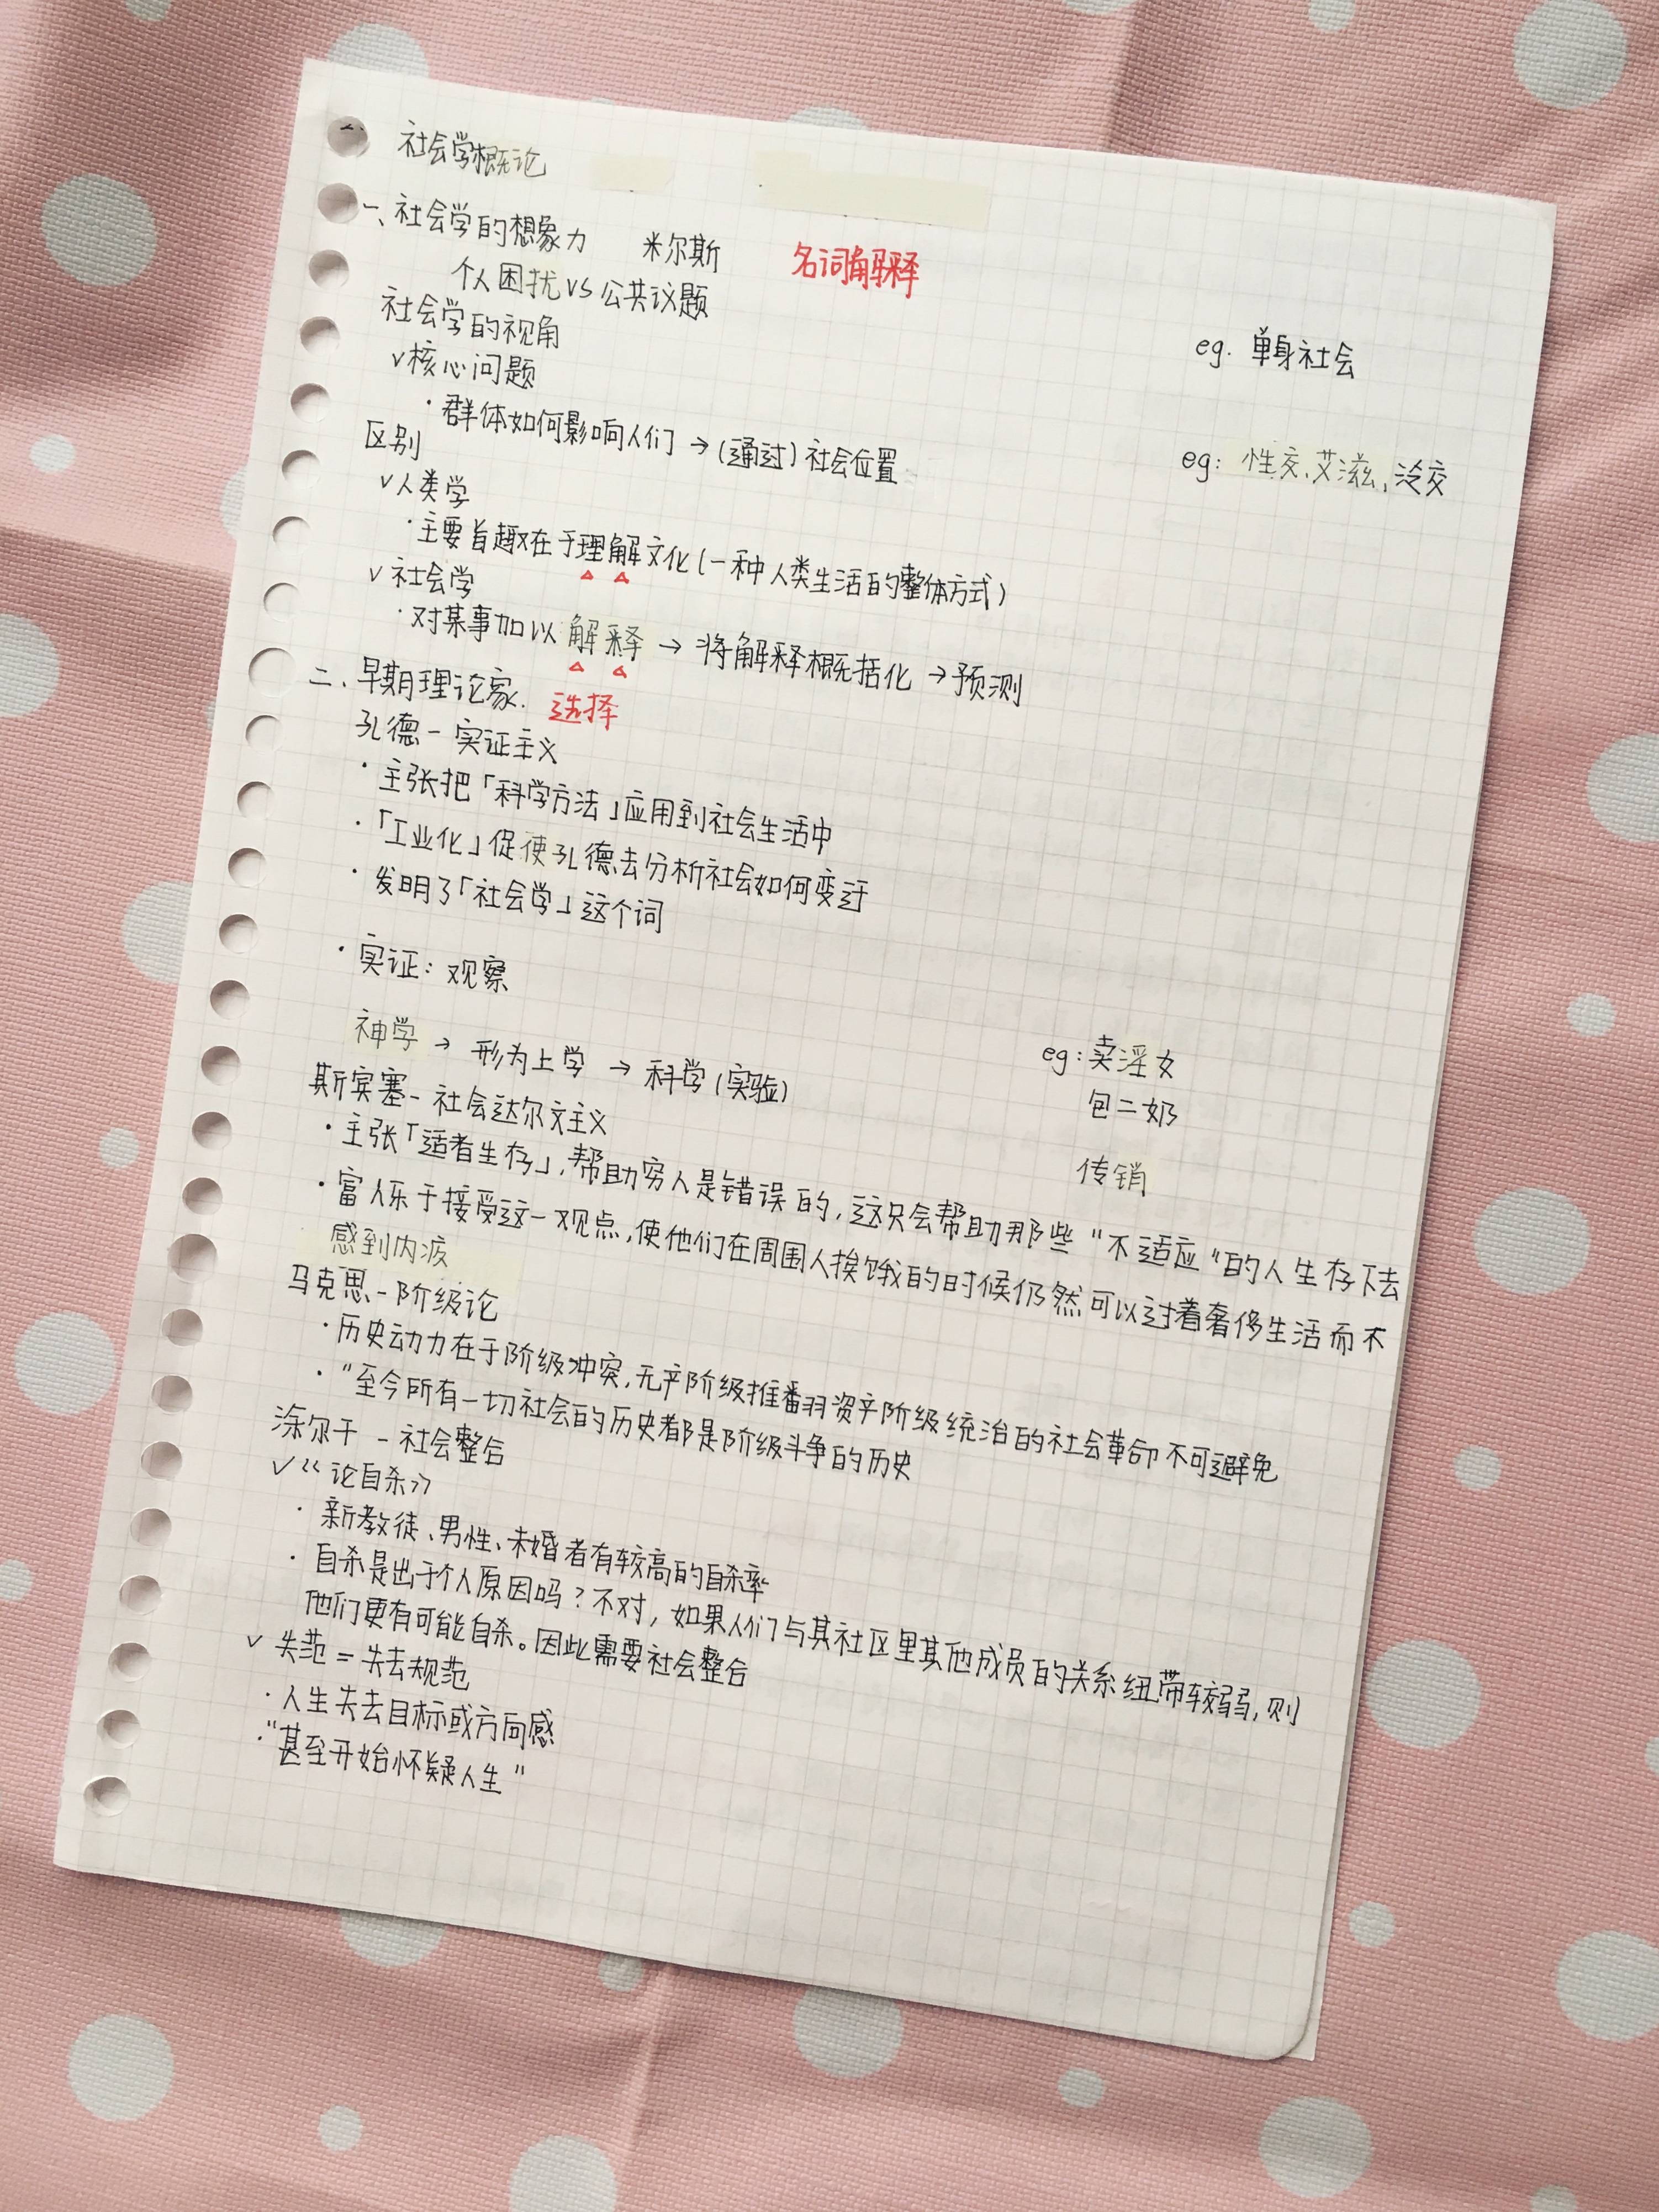 社会学概论
一、社会学的想象力 米尔斯 名词解释
个人困扰 vs 公共议题
社会学的视角 eg. 单身社会
✓核心问题
·群体如何影响人们→(通过)社会位置
区别 eg: 性交、艾滋、滥交
✓人类学
·主要旨趣在于理解文化(一种人类生活的整体方式)
✓社会学
·对某事加以解释→将解释概括化→预测
二、早期理论家. 选择
孔德-实证主义
·主张把「科学方法」应用到社会生活中
·「工业化」促使孔德去分析社会如何变迁
·发明了「社会学」这个词
·实证: 观察
神学→形为上学→科学(实验) eg: 卖淫女
包二奶
斯宾塞-社会达尔文主义 传销
·主张「适者生存」,帮助穷人是错误的,这只会帮助那些"不适应"的人生存下去
·富人乐于接受这一观点,使他们在周围人挨饿的时候仍然可以过着奢侈生活而不
感到内疚
马克思-阶级论
·历史动力在于阶级冲突,无产阶级推翻资产阶级统治的社会革命不可避免
·"至今所有一切社会的历史都是阶级斗争的历史
涂尔干-社会整合
✓《论自杀》
·新教徒、男性、未婚者有较高的自杀率
·自杀是出于个人原因吗?不对,如果人们与其社区里其他成员的关系纽带较弱,则
他们更有可能自杀。因此需要社会整合
✓失范=失去规范
·人生失去目标或方向感
·"甚至开始怀疑人生"